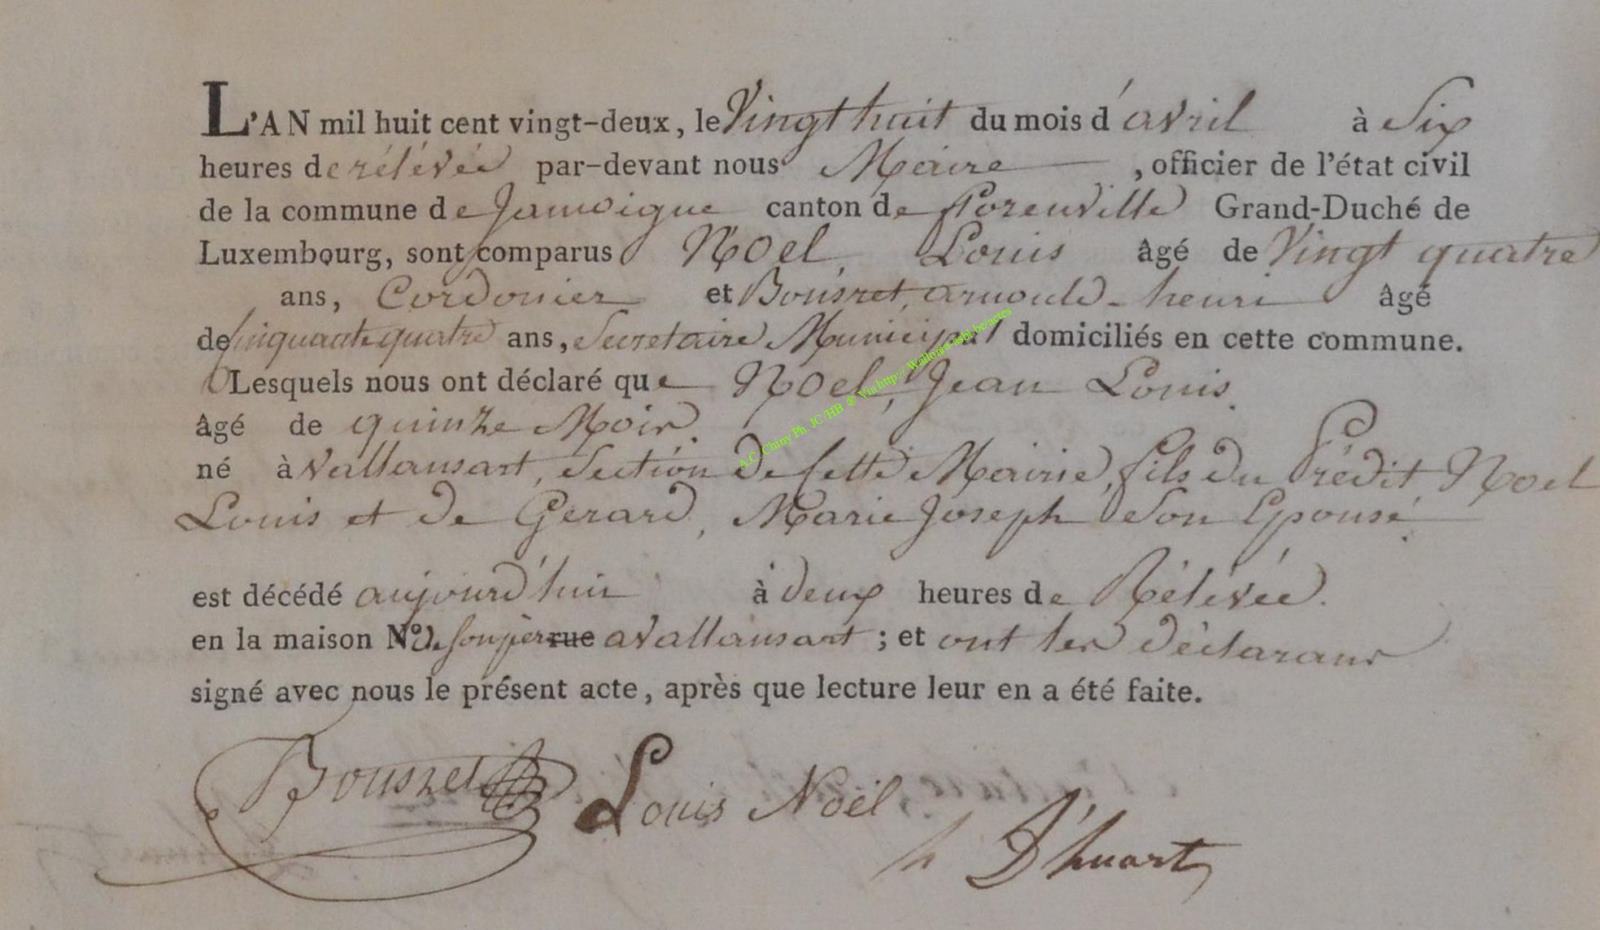 L'AN mil huit cent vingt-deux, le Vingt huit du mois d'avril à Six
heures de rélévée par-devant nous Maire, officier de l'état civil
de la commune de Jamoigne canton de florenville Grand-Duché de
Luxembourg, sont comparus Noel, Louis âgé de Vingt quatre
ans, Cordonier et Bousret, arnould-henri âgé
de Cinquante quatre ans, Secretaire Municipal domiciliés en cette commune.
Lesquels nous ont déclaré que Noel, Jean Louis.
âgé de quinze Mois.
né à Vallansart, Section de Cette Mairie, fils du Prédit Noel
Louis et de Gerard, Marie Joseph Son Epouse.
est décédé aujourd'huir à deux heures de Rélévée.
en la maison No. de son père rue a Vallansart ; et ont les déclarans
signé avec nous le présent acte, après que lecture leur en a été faite.
Bousret Louis Noël
h D'huart
A.C. Chiny Ph. JC/HB & Via http://